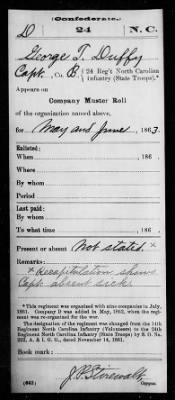 (Confederate.)
D 24 N.C.
George T. Duffy
Capt., Co. B, 24 Reg't North Carolina
Infantry (State Troops).*
Appears on
Company Muster Roll
of the organization named above,
for May and June, 1863.
Enlisted:
When , 186 .
Where
By whom
Period
Last paid:
By whom
To what time , 186 .
Present or absent Not stated. x
Remarks:
x Recapitulation shows
Capt. absent sick.
*This regiment was organized with nine companies in July,
1861. Company D was added in May, 1862, when the regi-
ment was re-organized for the war.
The designation of the regiment was changed from the 14th
Regiment North Carolina Infantry (Volunteers) to the 24th
Regiment North Carolina Infantry (State Troops) by S. O. No.
222, A. & I. G. O., dated November 14, 1861.
Book mark:
(642)
Copyist.